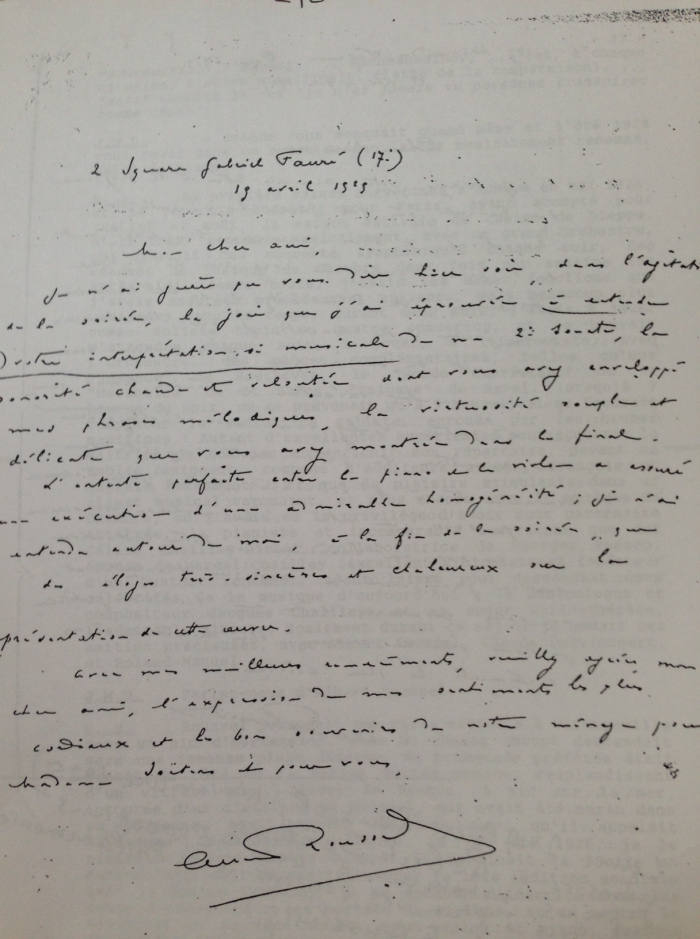 2 Square Gabriel Fauré (17e)
19 avril 1929
Mon cher ami,
Je n'ai guère pu vous dire hier soir, dans l'agitation
de la soirée, la joie que j'ai éprouvée à entendre
votre interprétation si musicale de ma 2e Sonate, la
sonorité chaude et veloutée dont vous avez enveloppé
mes phrases mélodiques, la virtuosité souple et
délicate que vous avez montrée dans le final.
L'entente parfaite entre le piano et le violon a assuré
une exécution d'une admirable homogénéité ; je n'ai
entendu autour de moi, à la fin de la soirée, que
des éloges très sincères et chaleureux sur la
présentation de cette œuvre.
Avec mes meilleurs remerciements, veuillez agréer mon
cher ami, l'expression de mes sentiments les plus
cordiaux et les bons souvenirs de notre ménage pour
Madame et pour vous.
Roussel